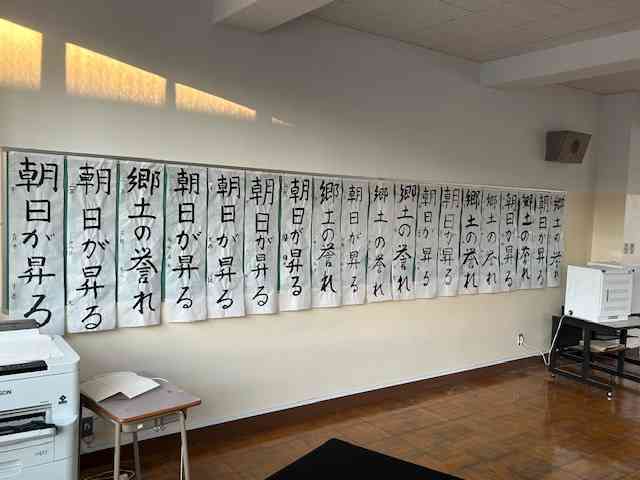 朝日が昇る
朝日が昇る
郷土の誉れ
朝日が昇る
朝日が昇る
朝日が昇る
朝日が昇る
郷土の誉れ
朝日が昇る
郷土の誉れ
郷土の誉れ
朝日が昇る
朝日が昇る
郷土の誉れ
郷土の誉れ
朝日が昇る
郷土の誉れ
朝日が昇る
郷土の誉れ
PSON